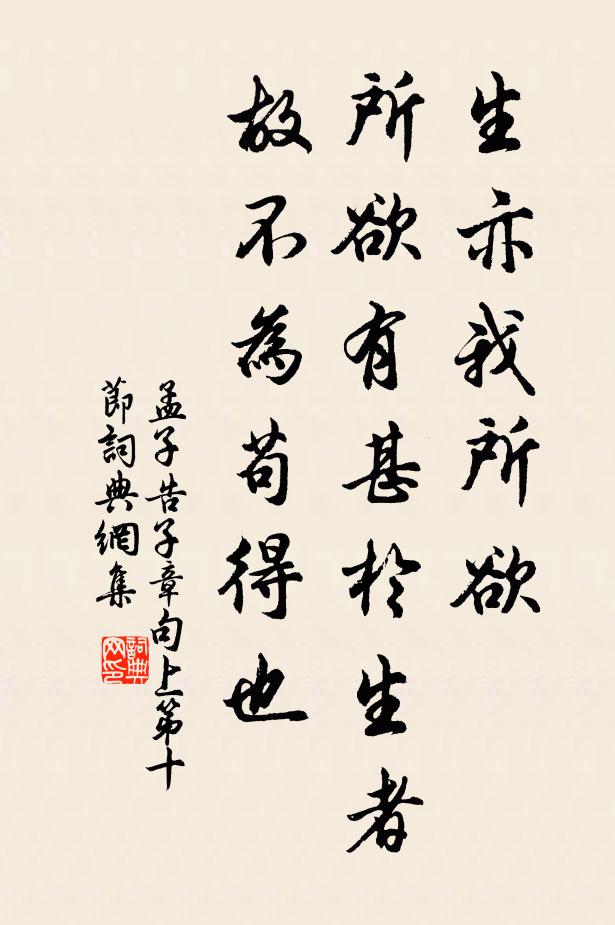 生亦我所欲
所欲有甚於生者
故不為苟得也
孟子告子章句上第十
節詞典網集
詞典
网印